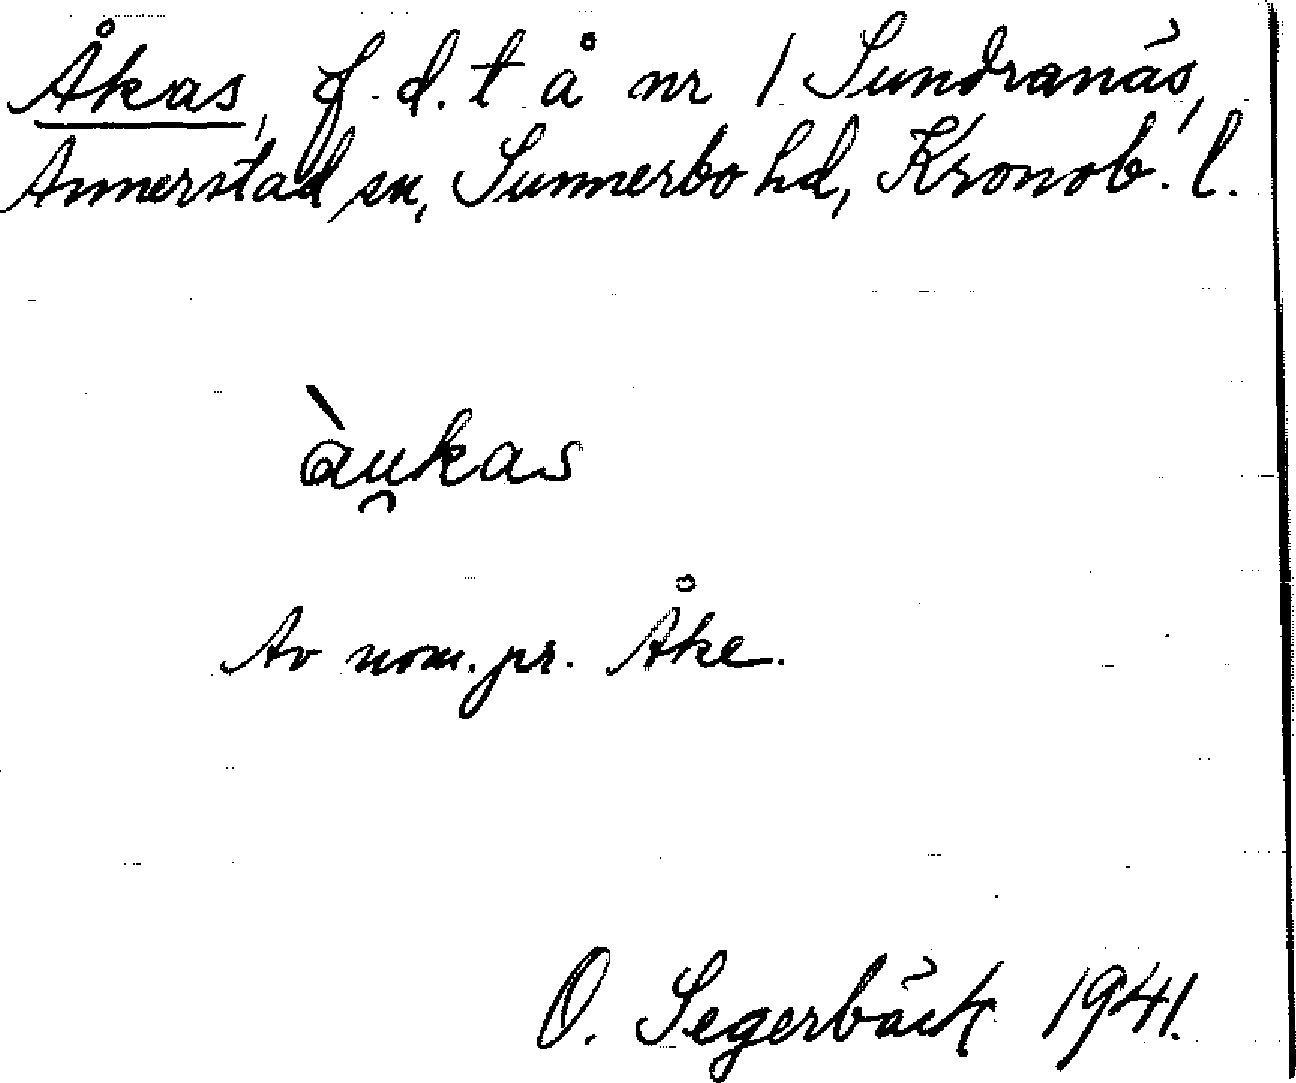 Åkas, f. d. t å nr 1 Sundranäs,
Annerstad sn, Sunnerbo hd, Kronob. l.
àu̯kas
Av nom. pr. Åke.
O. Segerbäck 1941.